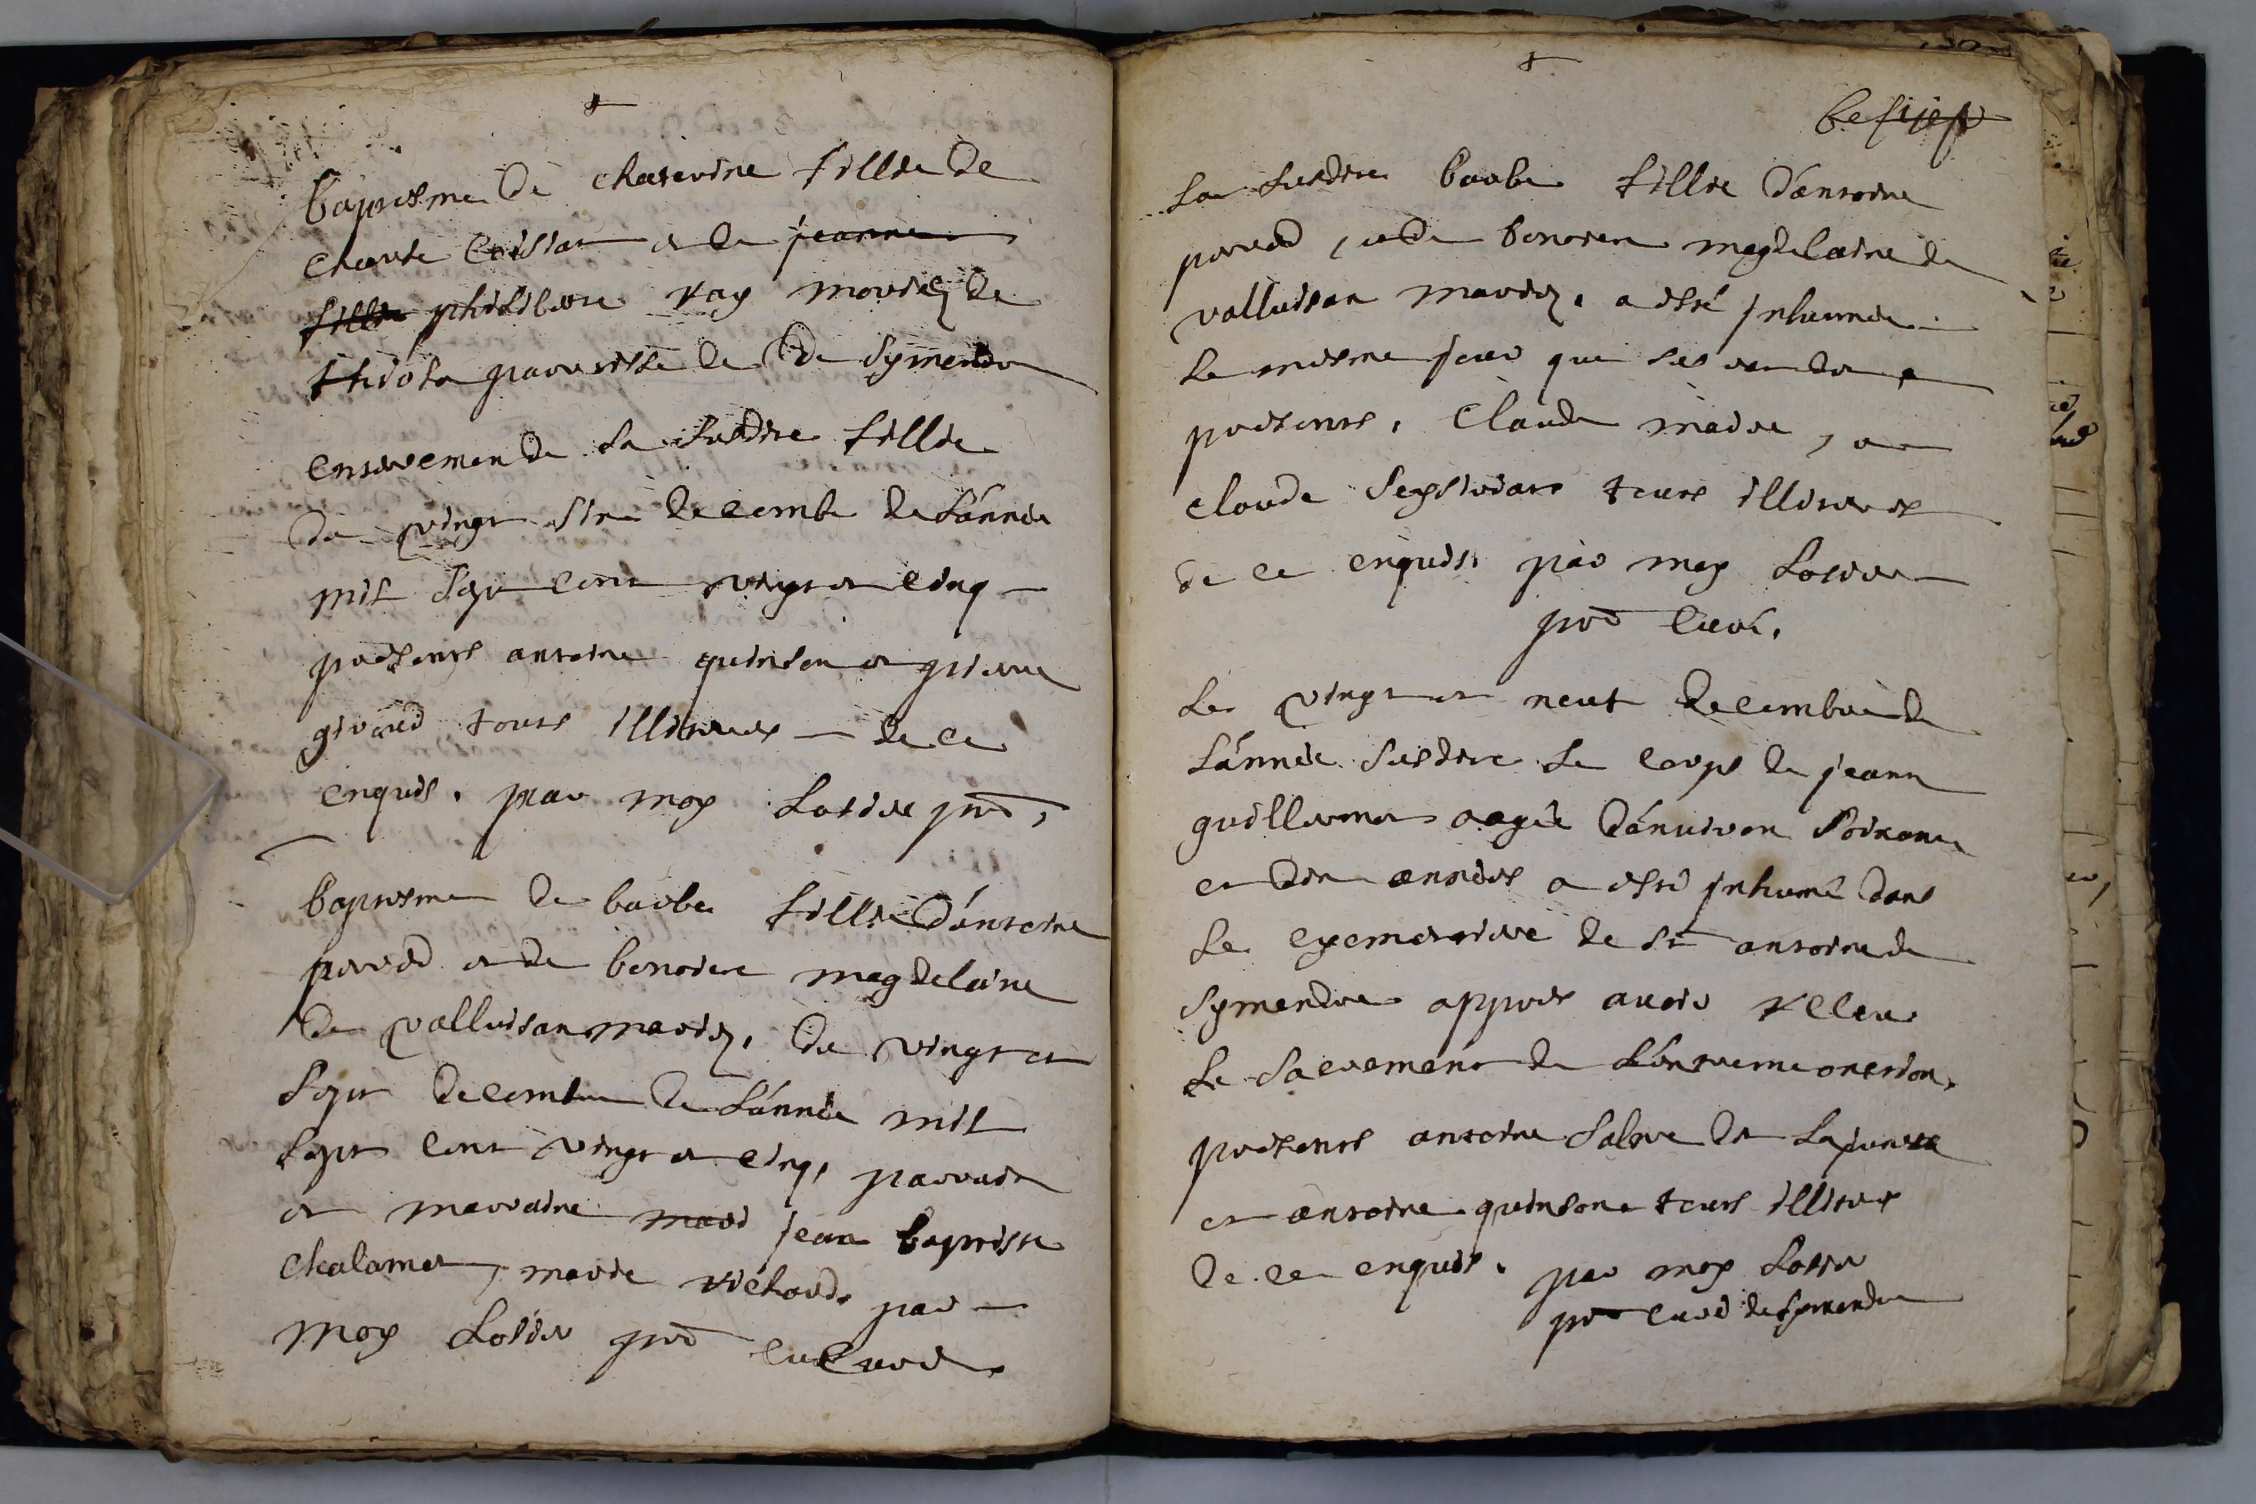 Baptesme de Chaterine fillie de
Claude Coissat et de jeanne
fillie philiberte ray mariez de
paroisse de de Symendre
Enterremen de la susditte fillie
du vingt sine decemb de lánnée
mil sept cent vingt et cinq
present antoine quinson et pierre
giraud touts illiteres de ce
enquis. par moy Losier ptre,
Baptesme de barbe fillie dántoine
pererd et de benoiste magdelaine
de valluisan mariez, du vingt et
sept decembre de lánnée mil
sept cent vingt et cinq, parrain
et marraine mari jean baptiste
Chalamet, marie richard, par
moy Losier ptre Curé
La susditte barbe fillie dántoine
pererd, et de benoiste magdelaine de
valluisan mariez, a esté inhumée
le mesme jour que
present, Claude maire, et
claude touts illiteres
de ce enquis, par moy Losier
ptre Curé,
Le vingt et neuf decembre de
lánnée susditte le corps de jeanne
guillermet aagée dénviron soixante
et dix années a esté inhumé dans
le cymeptiere de st antoine de
Symendre appres avoir receu
le sacrement de léxtreme onction,
present antoine de
et antoine quinson touts illiteres
de ce enquis, par moy Losier
ptre Curé de Symendre